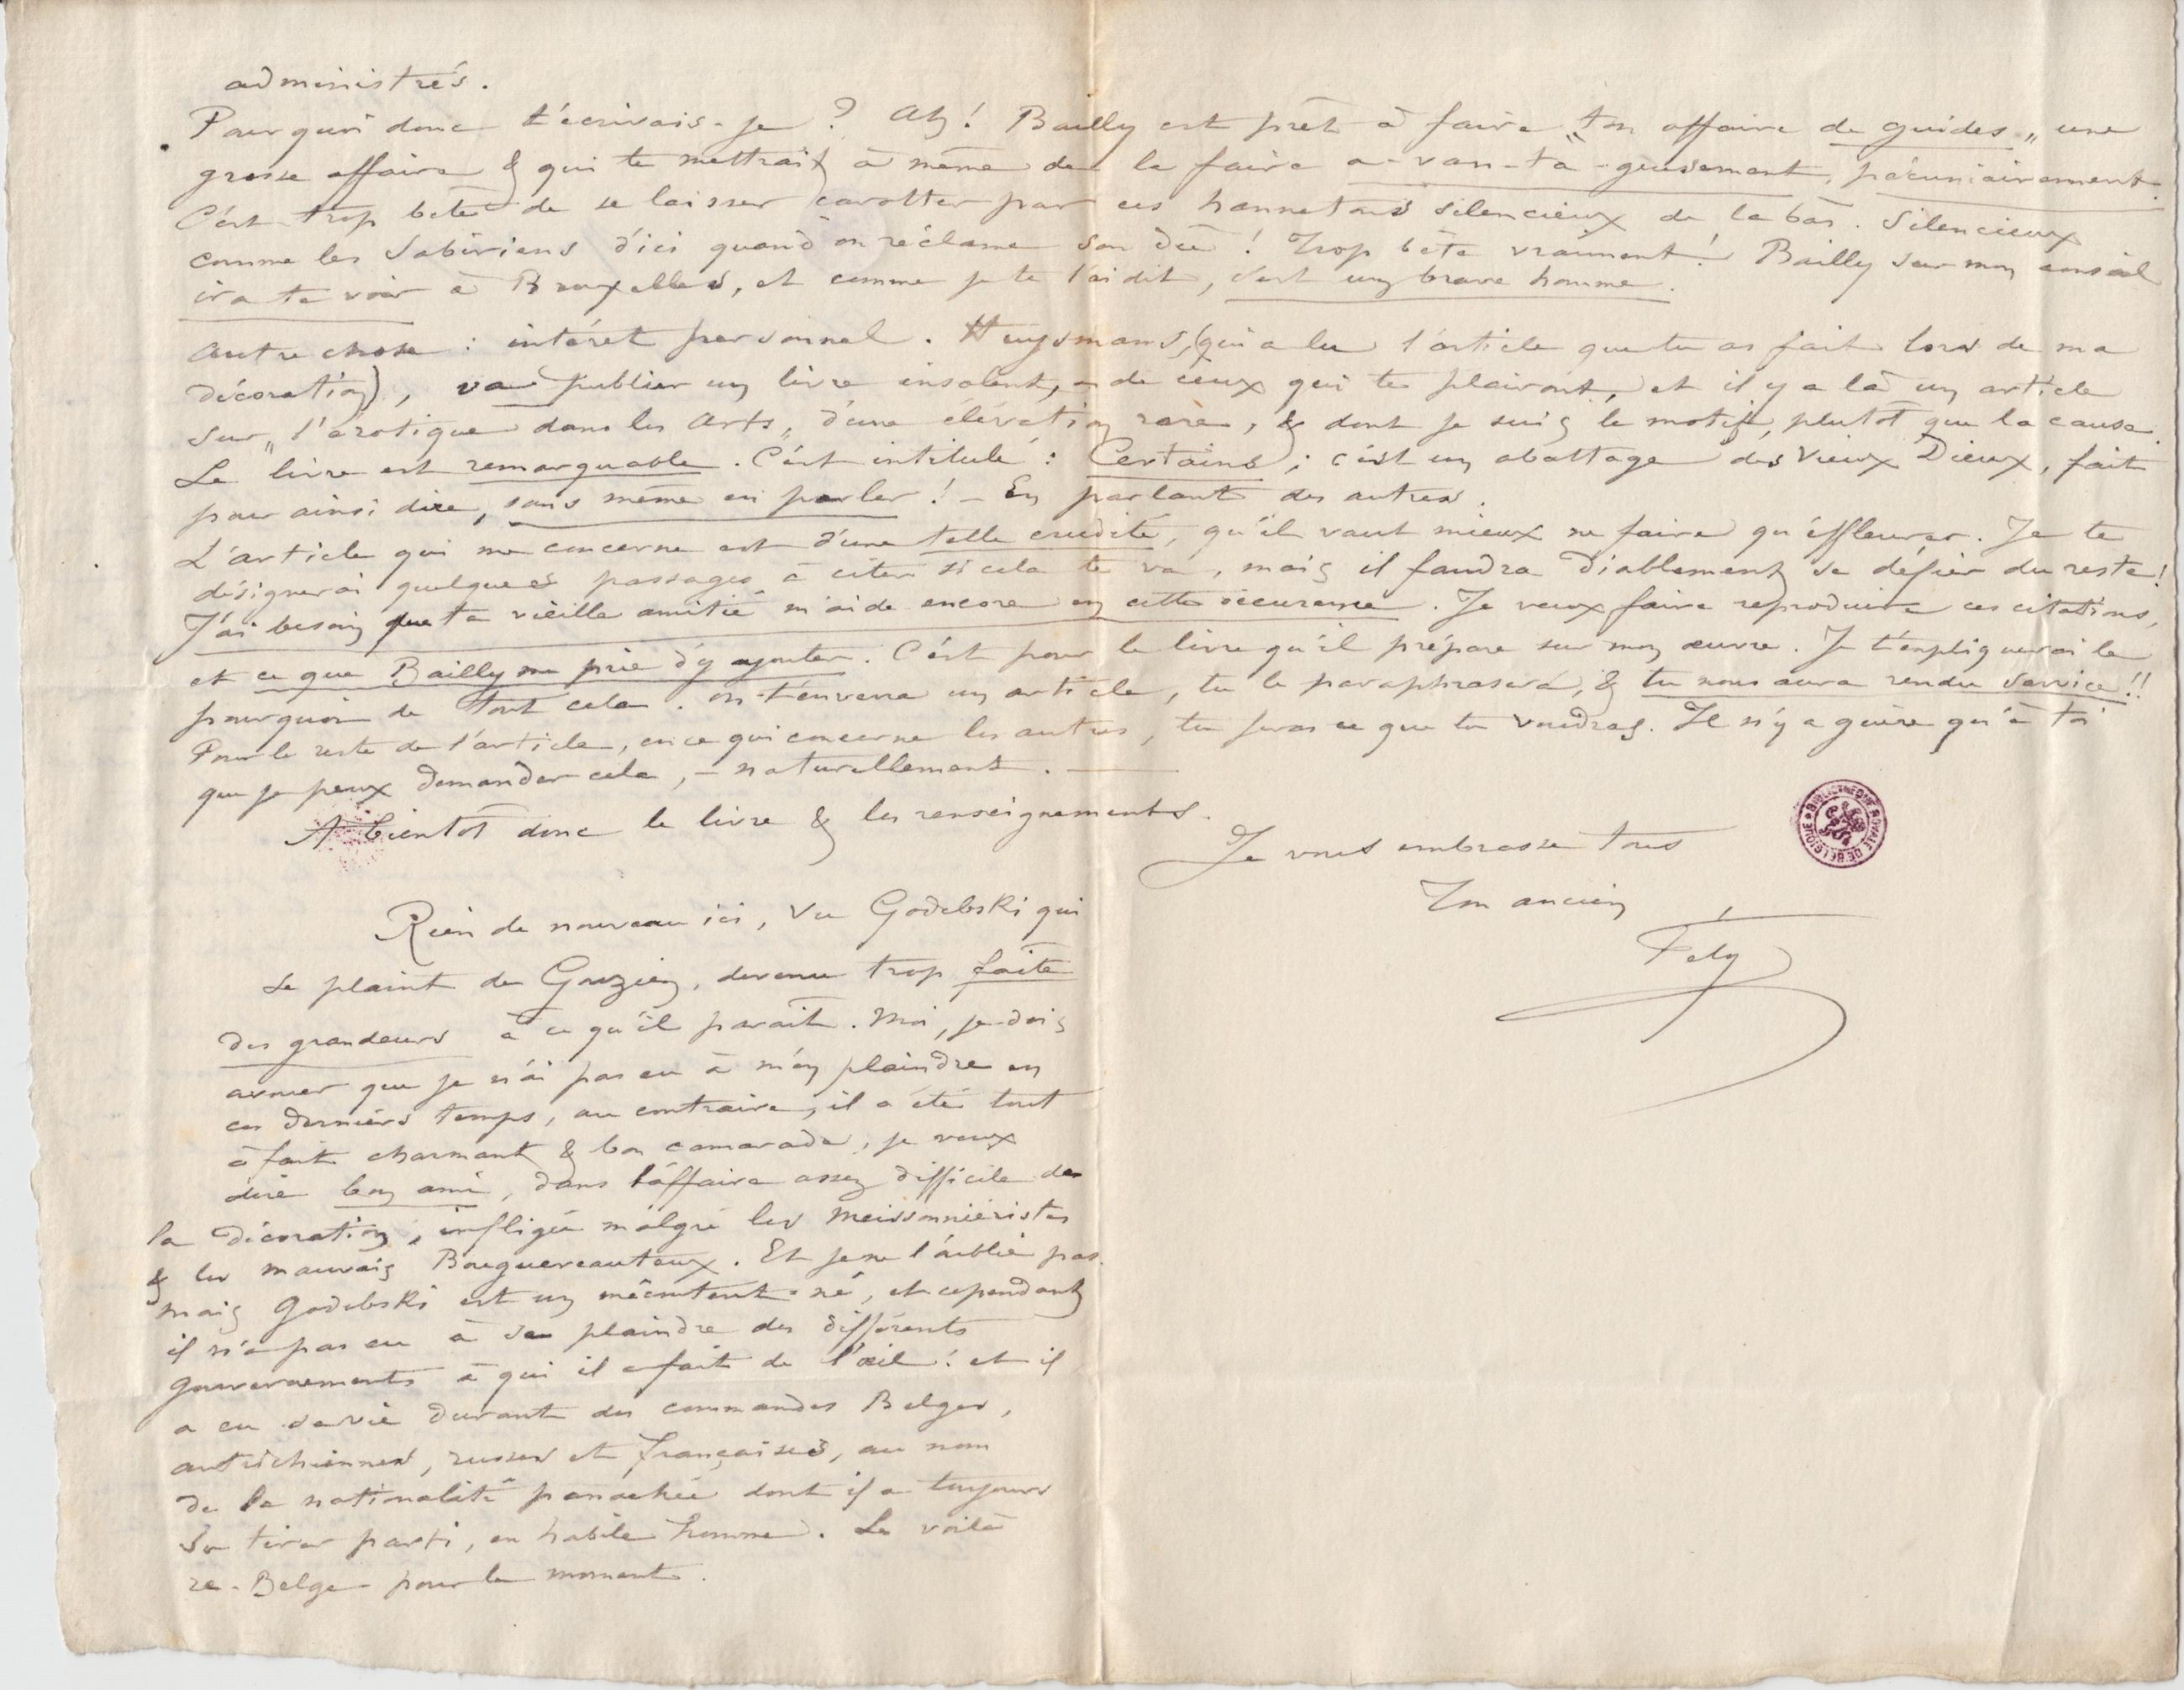 administrés.
Pourquoi donc t'écrivais-je ? Ah ! Bailly est prêt à faire "ton affaire de guides" une
grosse affaire & qui te mettrait à même de la faire a-van-ta-geusement, pécuniairement.
C'est trop bête de se laisser carotter par ces hannetons silencieux de la bas. Silencieux
comme les Sibériens d'ici quand on réclame son dû ! Trop bête vraiment ! Bailly sur mon conseil
ira te voir à Bruxelles, et comme je te l'ai dit, c'est un brave homme.
Autre chose : intéret personnel. Huysmans, (qui a lu l'article que tu as fait lors de ma
décoration), va publier un livre insolent, - de ceux qui te plairont, et il y a là un article
sur "l'érotique dans les Arts" d'une élévation rare, & dont je suis le motif, plutôt que la cause.
Le livre est remarquable. C'est intitulé : Certains ; c'est un abattage des Vieux Dieux, fait
pour ainsi dire, sans même en parler ! – En parlant des autres.
L'article qui me concerne est d'une telle crudité, qu'il vaut mieux ne faire qu'éffleurer. Je te
désignerai quelques passages à citer si cela te va, mais il faudra diablement se défier du reste !
J'ai besoin que ta vieille amitié m'aide encore en cette occurence. Je veux faire reproduire ces citations,
et ce que Bailly me prie d'y ajouter. C'est pour le livre qu'il prépare sur mon œuvre. Je t'expliquerai le
pourquoi de tout cela. on t'enverra un article, tu le paraphrasera, & tu nous aura rendu service !!
Pour le reste de l'article, en ce qui concerne les autres, tu feras ce que tu voudras. Il n'y a guère qu'à toi
que je peux demander cela, – naturellement. —
A bientôt donc le livre & les renseignements.
Je vous embrasse tous
Ton ancien
Fély
BIBLIOTHEQUE ROYALE DE BELGIQUE
Rien de nouveau ici, Vu Godebski qui
se plaint de Gouzien, devenu trop faîte
des grandeurs à ce qu'il parait. Moi, je dois
avouer que je n'ai pas eu à m'en plaindre en
ces derniers temps, au contraire, il a été tout
à fait charmant & bon camarade, je veux
dire bon ami, dans l'affaire assez difficile de
la décoration, infligée malgré les Meissonniéristes
& les mauvais Bouguereauteux. Et je ne l'oublie pas.
mais Godebski est un mécontent-né, et cependant
il n'a pas eu à se plaindre des différents
gouvernements à qui il a fait de l'œil ! et il
a eu sa vie durant des commandes Belges,
autrichiennes, russes et françaises, au nom
de la nationalité panachée dont il a toujours
su tirer parti, en habile homme. Le voilà
re-Belge pour le moment.